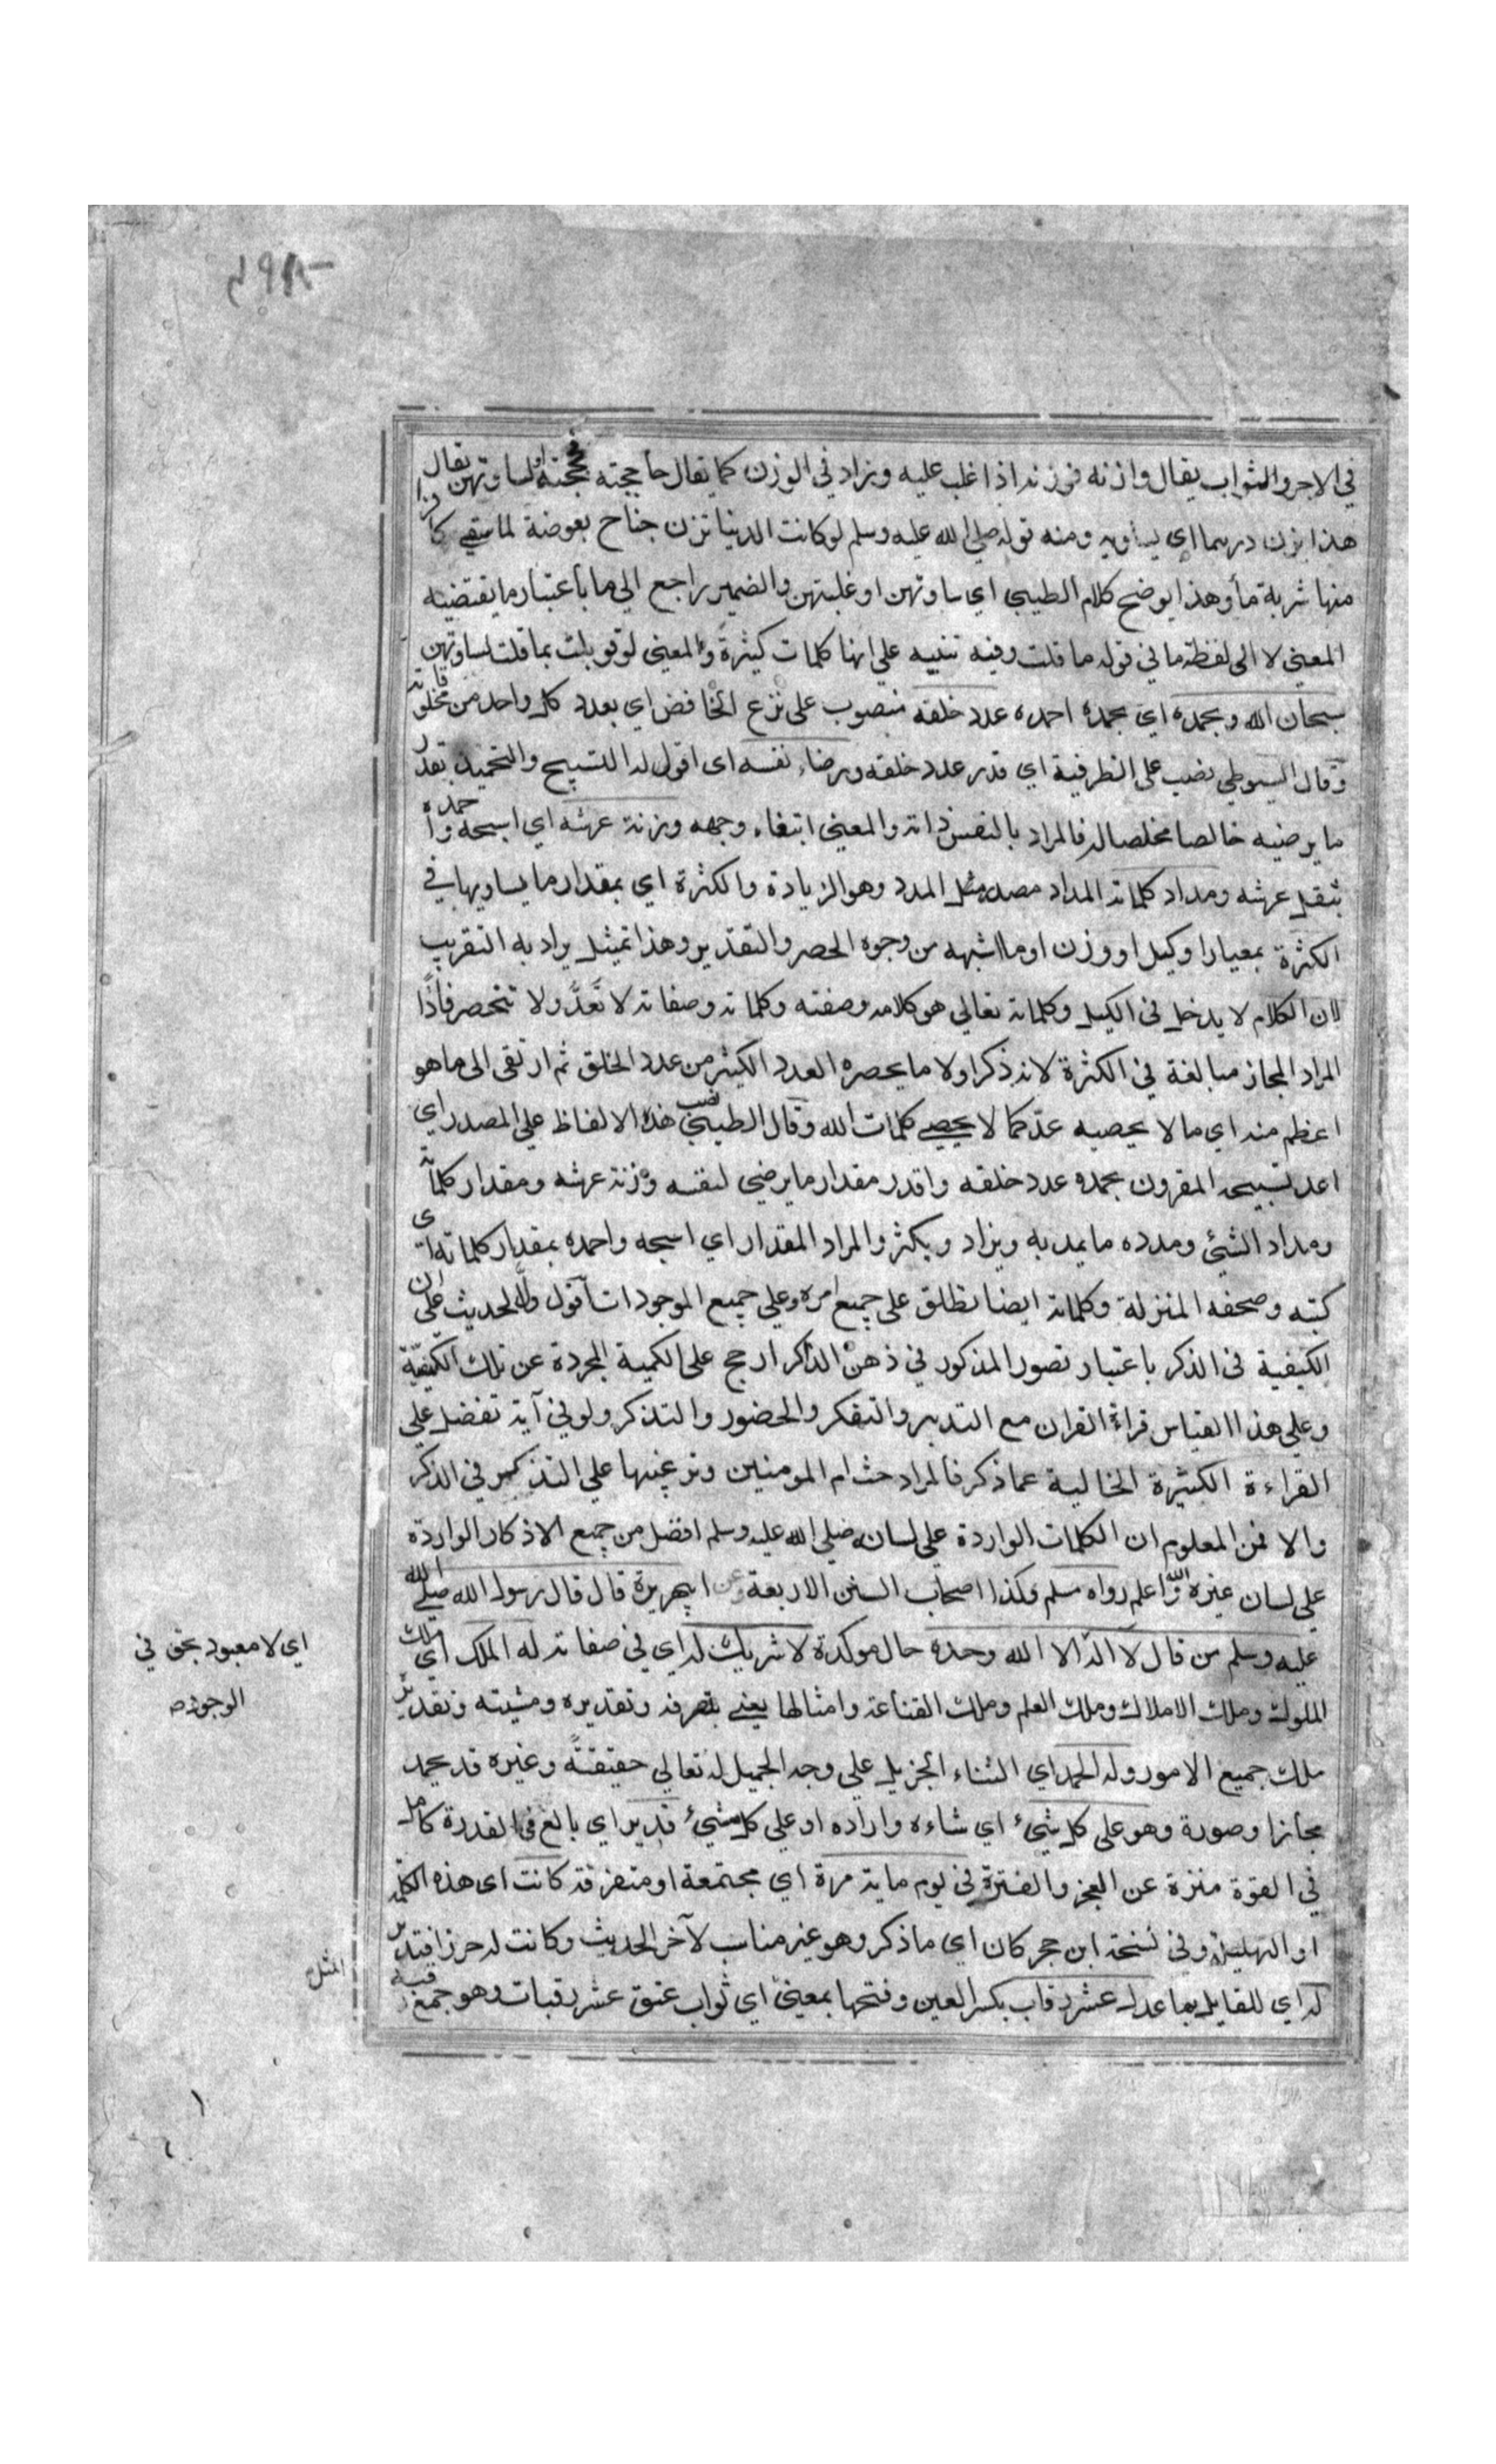 في الاجر والثواب يقال وازنه فوزنه اذا غلب عليه وزاد في الوزن كما يقال حاججته فحججته او لساوتهن يقال
هذا يزن درهما اي يساويه ومنه قوله صلي الله عليه وسلم لو كانت الدنيا تزن جناح بعوضة لما سقي كافرا
منها شربة مأ وهذا يوضح كلام الطيبي اي ساوتهن او غلبتهن والضمير راجع الي ما باعتبار ما يقتضيه
المعني لا الي لفظة ما في قوله ما قلت وفيه تنبيه علي انها كلمات كثيرة والمعني لو قوبلت بما قلت لساوتهن
سبحان الله وبحمده اي بحمده احمده عدد خلقه منصوب على نزع الخافض اي بعدد كل واحد من مخلوقاته
وقال السيوطي نصب على الظرفية اي قدر عدد خلقه ورضاء نفسه اى اقول له التسبيح والتحميد بقدر
ما يرضيه خالصا مخلصا له فالمراد بالنفس ذاته والمعني ابتغاء وجهه وزنة عرشه اي اسبحه واحمده
بثقل عرشه ومداد كلماته المداد مصدر مثل المدد وهو الزيادة والكثرة اي بمقدار ما يساويها في
الكثرة بمعيار او كيل او وزن او ما اشبهه من وجوه الحصر والتقدير وهذا تمثيل يراد به التقريب
لان الكلام لا يدخل في الكيل وكلماته تعالي هو كلامه وصفته وكلماته وصفاته لا تعد ولا تنحصر فاذا
المراد المجاز مبالغة في الكثرة لانه ذكر اولا ما يحصره العدد الكثير من عدد الخلق ثم ارتقى الى ما هو
اعظم منه اي ما لا يحصيه عد كما لا يحصي كلمات الله وقال الطيبي نصب هذه الالفاظ علي المصدر اي
اعد تسبيحه المقرون بحمده عدد خلقه واقدر مقدار ما يرضي لنفسه وزنة عرشه ومقدار كلماته
ومداد الشيئ ومدده ما يمد به ويزاد ويكثر والمراد المقدار اي اسبحه واحمده بمقدار كلماته اي
كتبه وصحفه المنزلة وكلماته ايضا تطلق علي جميع امره وعلي جميع الموجودات اقول دل الحديث علي ان
الكيفية في الذكر باعتبار تصور المذكور في ذهن الذاكر ارجح على الكمية المجردة عن تلك الكيفية
وعلي هذا القياس قراءة القران مع التدبر والتفكر والحضور والتذكر ولو في آية تفضل علي
القراءة الكثيرة الخالية عما ذكر فالمراد حث ام المومنين وترغيبها علي التذكير في الذكر
والا فمن المعلوم ان الكلمات الواردة علي لسانه صلي الله عليه وسلم افضل من جميع الاذكار الواردة
علي لسان غيره والله اعلم رواه مسلم وكذا اصحاب السنن الاربعة وعن ابي هريرة قال قال رسول الله صلي الله
عليه وسلم من قال لا اله الا الله وحده حال موكدة لا شريك له اي في صفاته له الملك اي ملك
الملوك وملك الاملاك وملك العلم وملك القناعة وامثالها يعني بتصرفه وتقديره ومشيته وتقديره
ملك جميع الامور وله الحمد اي الثناء الجزيل علي وجه الجميل له تعالي حقيقة وغيره قد يحمد
مجازا وصورة وهو على كل شيئ اي شاءه واراده او علي كل شيئ قدير اي بالغ في القدرة كامل
في القوة منزه عن العجز والفترة في يوم ماية مرة اي مجتمعة او متفرقة كانت اى هذه الكلمة
او التهليلة وفي نسخة ابن حجر كان اي ما ذكر وهو غير مناسب لآخر الحديث وكانت له حرزا
له اي للقايل بها عدل عشر رقاب بكسر العين وفتحها بمعنى اي ثواب عتق عشر رقبات وهو جمع رقبة
اي لا معبود بحق في
الوجود
المثل